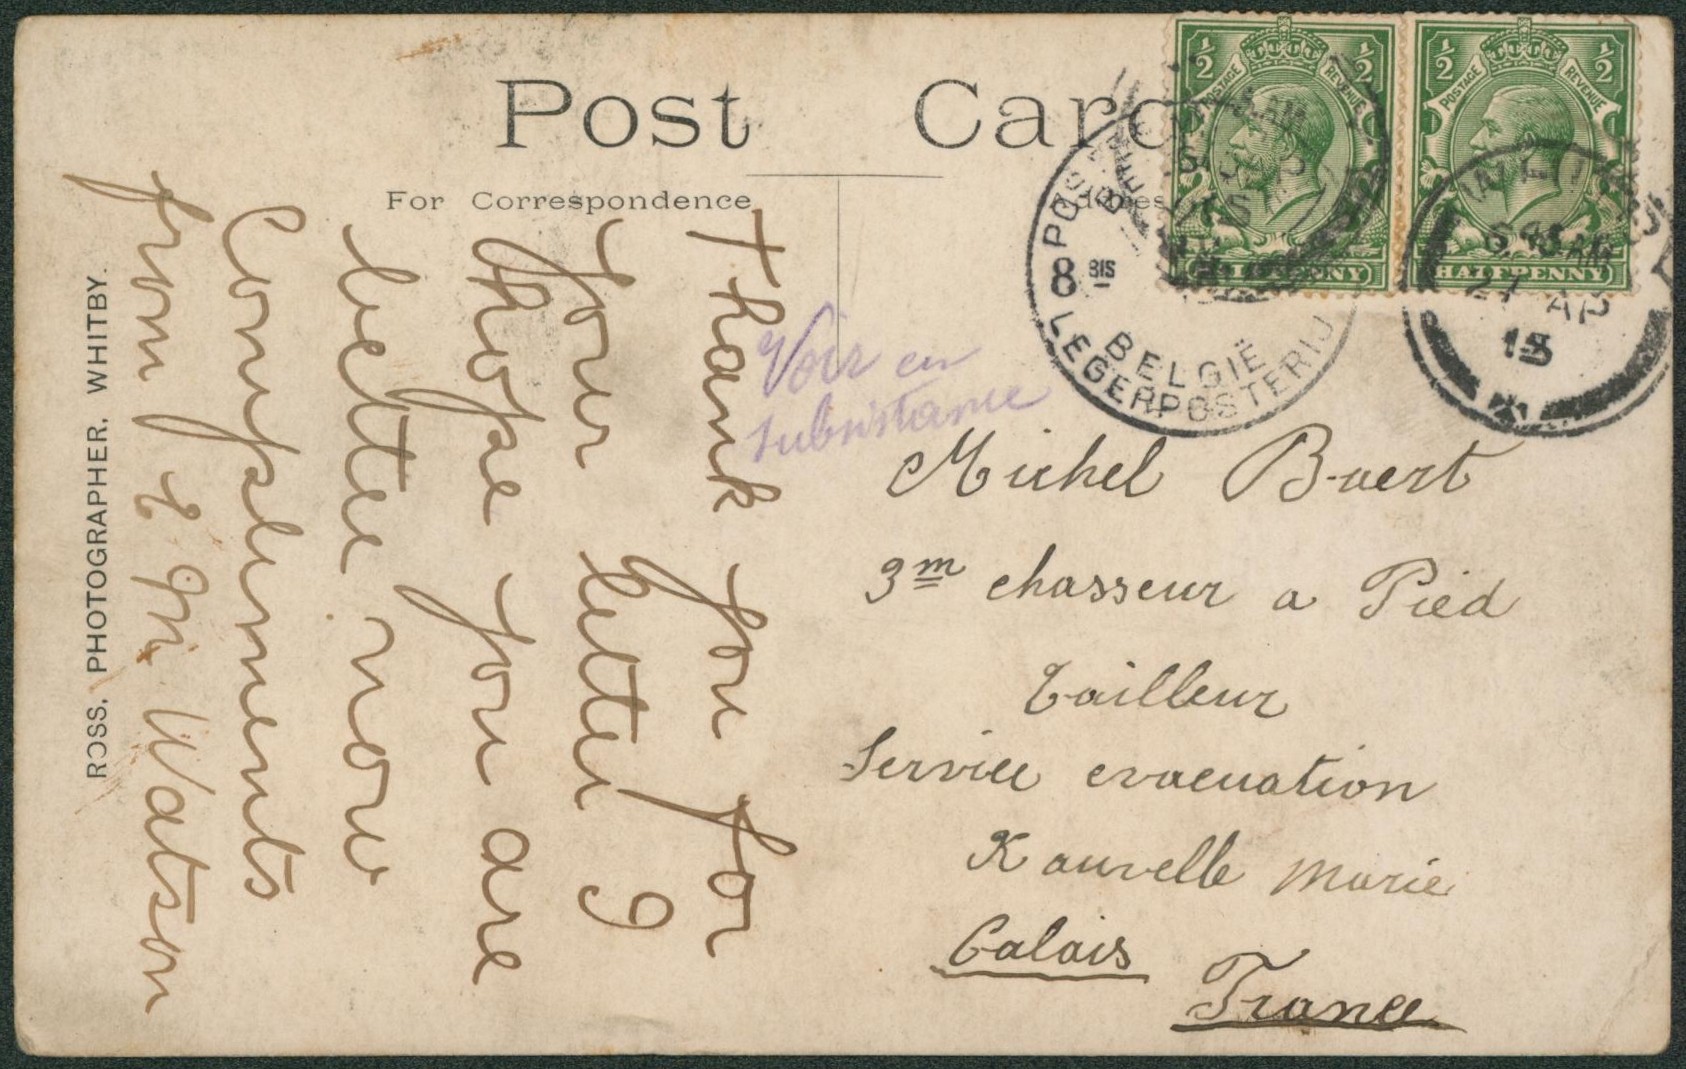 Post Card
For Correspondence
Address
Thank you for
your letter I
hope you are
better now
Compliments
from E M Watson
ROSS, PHOTOGRAPHER, WHITBY.
Voir en
subsistance
Michel Baert
3m chasseur a Pied
Tailleur
Service evacuation
Kauvelle Marie
Calais
France
½ ½
POSTAGE REVENUE
HALFPENNY
½ ½
POSTAGE REVENUE
HALFPENNY
8 BIS
BELGIË
LEGERPOSTERIJ
6 45 AM
AP
15